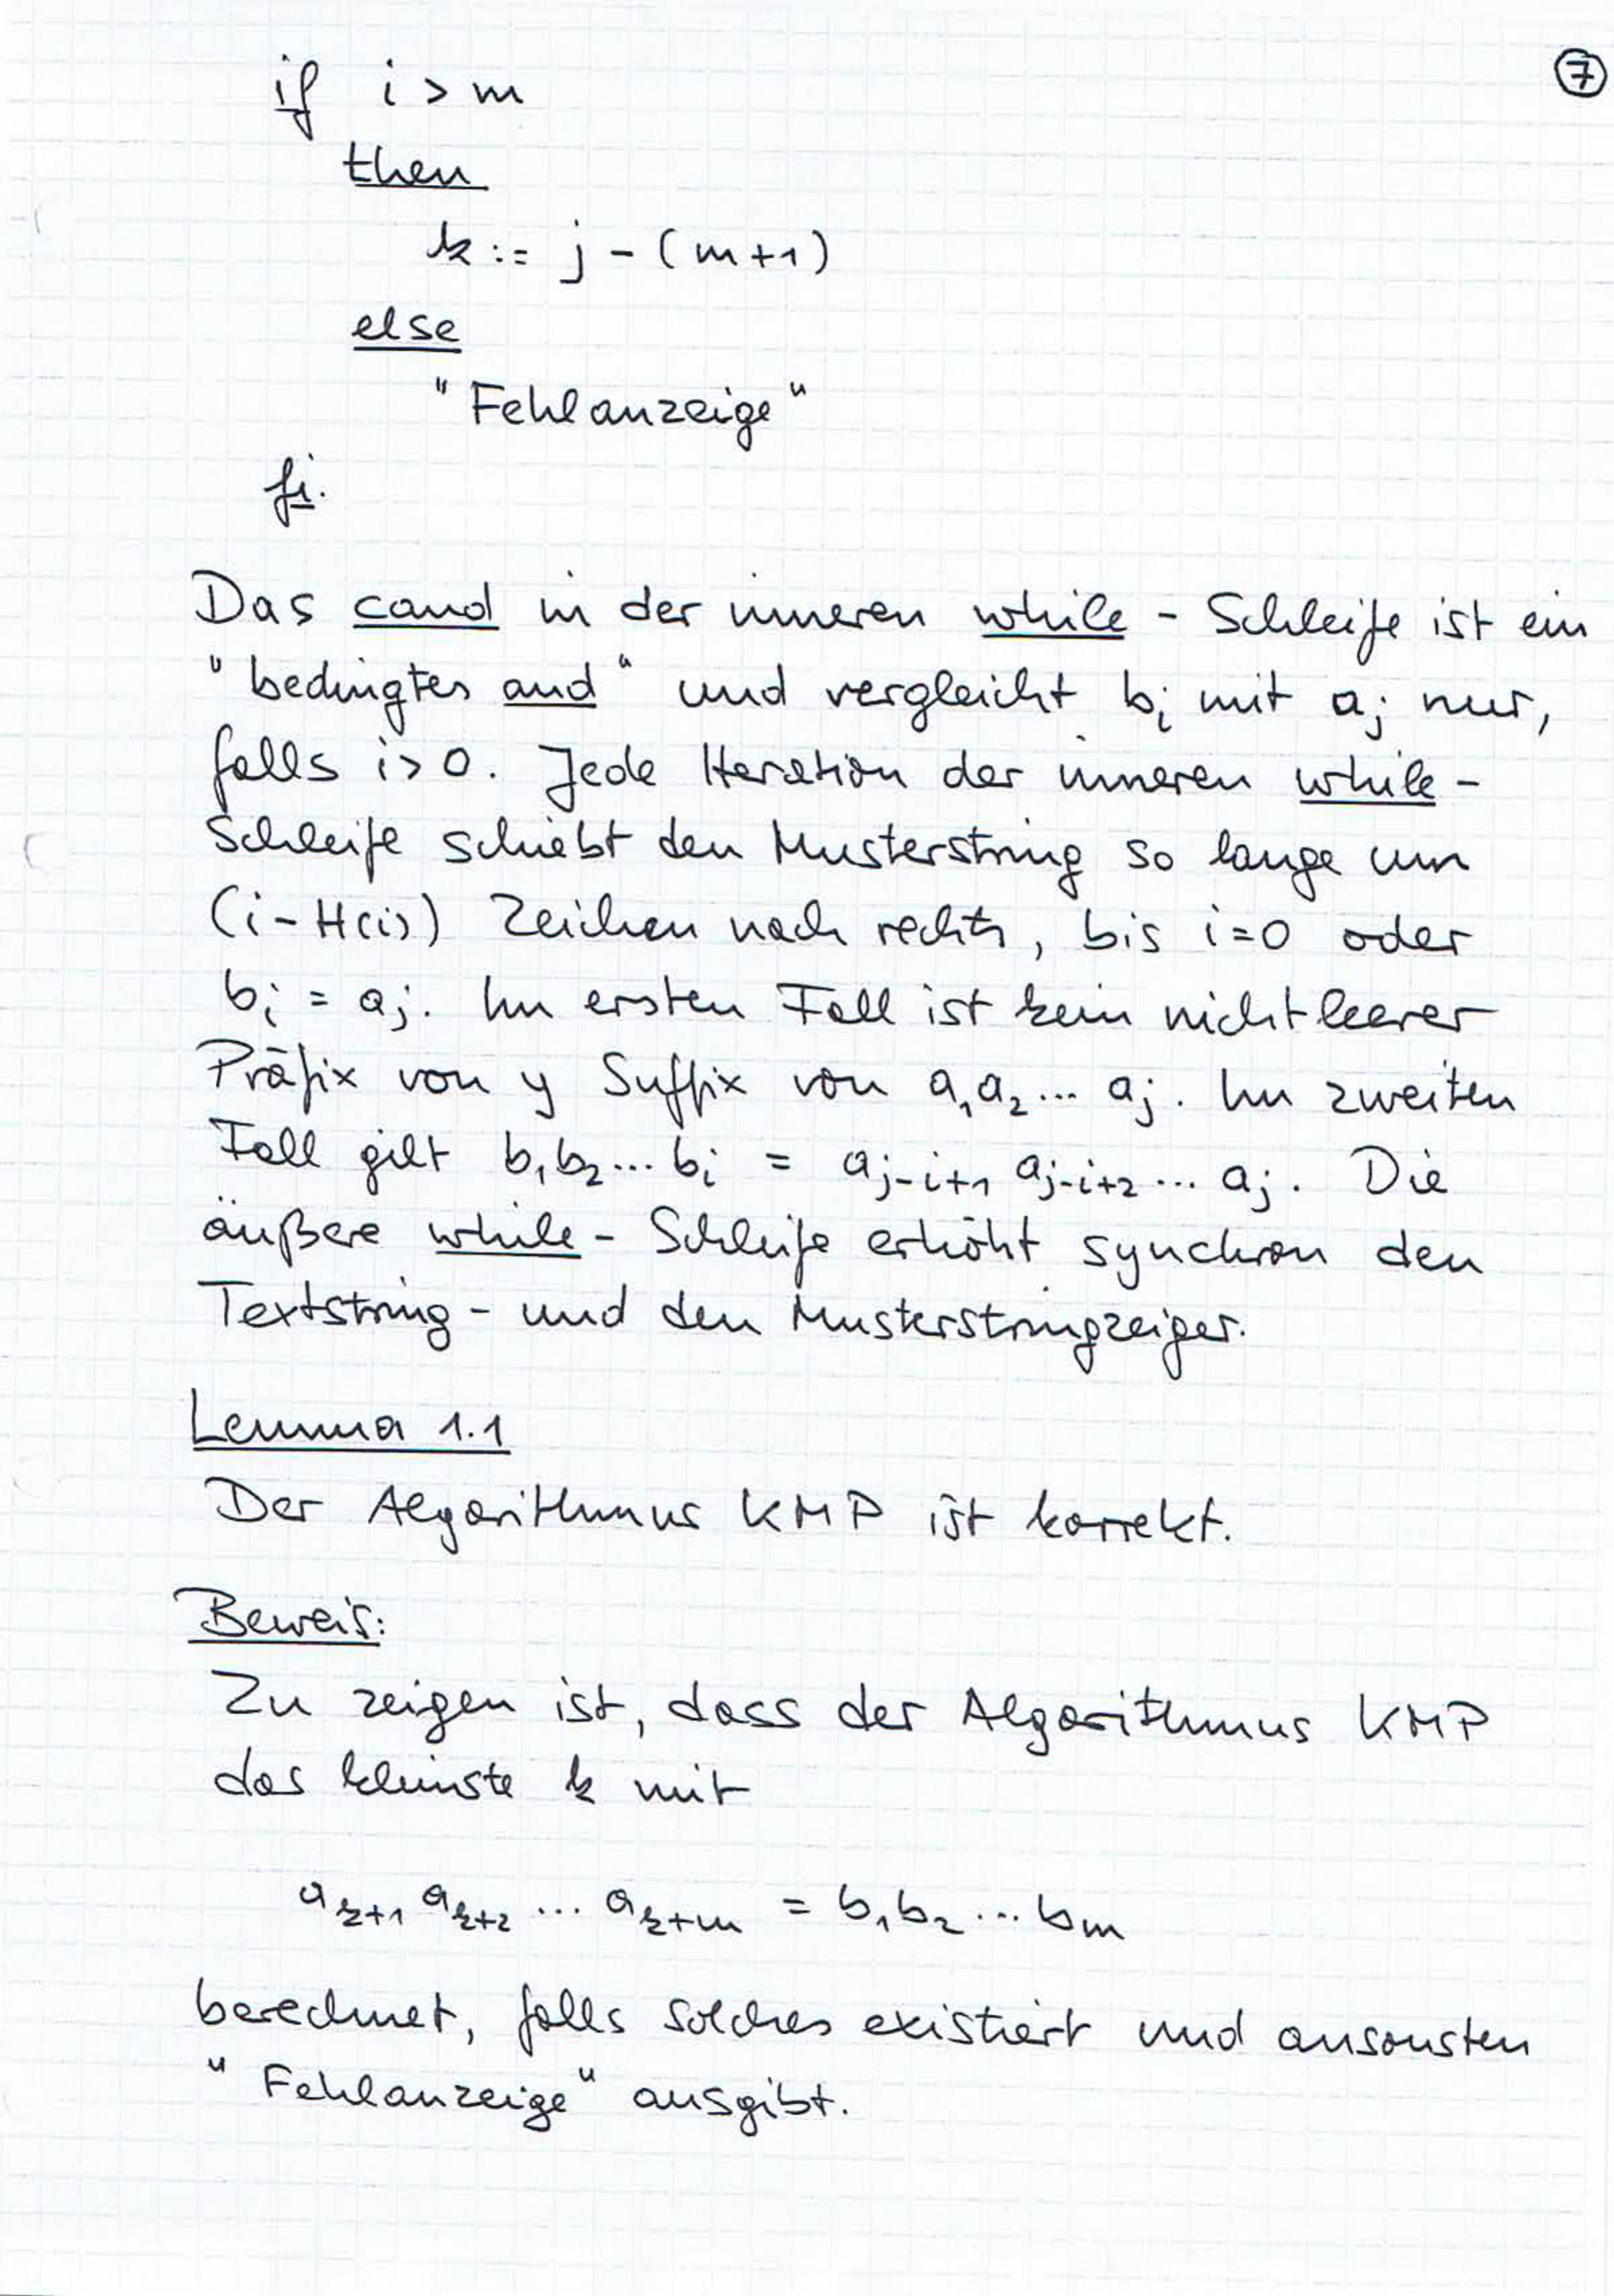 ⑦
if i > m
then
k := j - (m+1)
else
"Fehlanzeige"
fi.
Das cand in der inneren while - Schleife ist ein
"bedingtes and" und vergleicht bᵢ mit aⱼ nur,
falls i > 0. Jede Iteration der inneren while -
Schleife schiebt den Musterstring so lange um
(i - H(i)) Zeichen nach rechts, bis i = 0 oder
bᵢ = aⱼ. Im ersten Fall ist kein nichtleerer
Präfix von y Suffix von a₁a₂... aⱼ. Im zweiten
Fall gilt b₁b₂... bᵢ = aⱼ₋ᵢ₊₁ aⱼ₋ᵢ₊₂ ... aⱼ. Die
äußere while - Schleife erhöht synchron den
Textstring - und den Musterstringzeiger.
Lemma 1.1
Der Algorithmus KMP ist korrekt.
Beweis:
Zu zeigen ist, dass der Algorithmus KMP
das kleinste k mit
aₖ₊₁ aₖ₊₂ ... aₖ₊ₘ = b₁b₂ ... bₘ
berechnet, falls solches existiert und ansonsten
"Fehlanzeige" ausgibt.